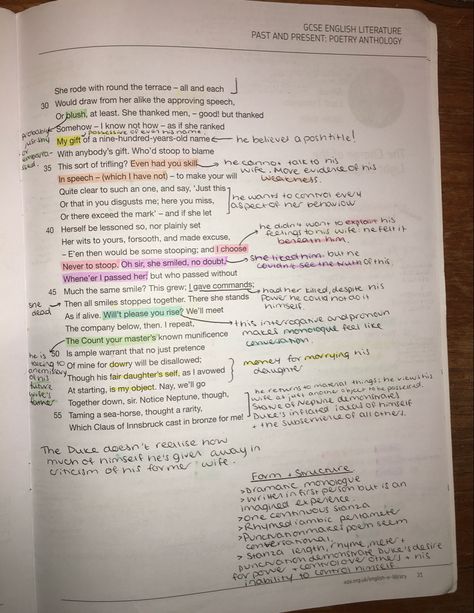 GCSE ENGLISH LITERATURE
PAST AND PRESENT: POETRY ANTHOLOGY
She rode with round the terrace – all and each
30 Would draw from her alike the approving speech,
Or blush, at least. She thanked men, – good! but thanked
Somehow – I know not how – as if she ranked
probably just shy or
possessive of even his name.
My gift of a nine-hundred-years-old name
he believes a posh title!
With anybody's gift. Who'd stoop to blame
35 This sort of trifling? Even had you skill
In speech – (which I have not) – to make your will
he cannot talk to his
wife. More evidence of his
weakness.
Quite clear to such an one, and say, 'Just this
Or that in you disgusts me; here you miss,
Or there exceed the mark' – and if she let
he wants to control every
aspect of her behaviour
40 Herself be lessoned so, nor plainly set
Her wits to yours, forsooth, and made excuse,
– E'en then would be some stooping; and I choose
Never to stoop. Oh sir, she smiled, no doubt,
Whene'er I passed her; but who passed without
he didn't want to explain his
feelings to his wife. he felt it
beneath him.
she liked him, but he
couldn't see the truth of this.
45 Much the same smile? This grew; I gave commands;
Then all smiles stopped together. There she stands
As if alive. Will't please you rise? We'll meet
she dead
had her killed, despite his
power he could not do it
himself.
The company below, then. I repeat,
The Count your master's known munificence
this interrogative and pronoun
makes monologue feel like
conversation.
50 Is ample warrant that no just pretence
Of mine for dowry will be disallowed;
Though his fair daughter's self, as I avowed
At starting, is my object. Nay, we'll go
he is talking to an emissary of his future wife's father
money for marrying his
daughter
Together down, sir. Notice Neptune, though,
55 Taming a sea-horse, thought a rarity,
Which Claus of Innsbruck cast in bronze for me!
he returns to material things: he views his
wife as just another object to be possessed.
Statue of Neptune demonstrates
Duke's inflated ideas of himself
+ the subservience of all others.
The Duke doesn't realise how
much of himself he's given away in
criticism of his former wife.
Form + Structure
>Dramatic monologue
>Written in first person but is an
imagined experience.
>one continuous stanza
>Rhymed iambic pentameter
>Punctuation makes poem seem
conversational.
>Stanza length, rhyme, meter +
punctuation demonstrate Duke's desire
for power + control over others + his
inability to control himself
aqa.org.uk/english-e-library 31